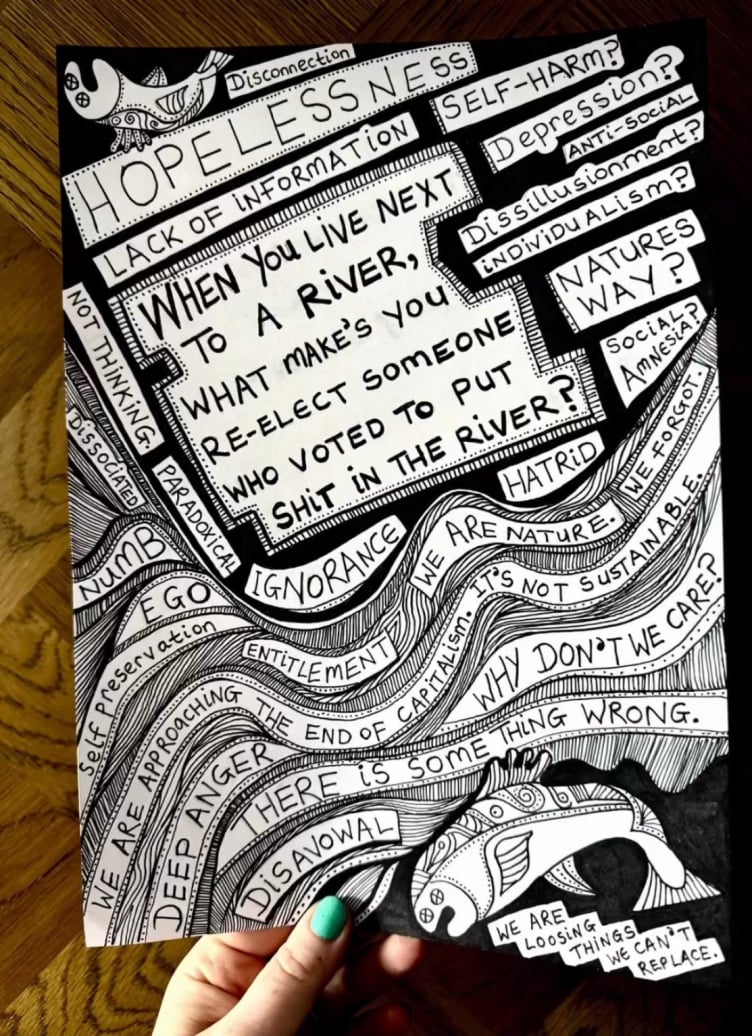 Disconnection
HOPELESSNESS
SELF-HARM?
Depression?
ANTI-SOCIAL
LACK OF INFORMATION
Dissillusionment?
INDIVIDUALISM?
NATURES
WAY?
SOCIAL
AMNESIA?
WHEN YOU LIVE NEXT
TO A RIVER,
WHAT MAKE'S YOU
RE-ELECT SOMEONE
WHO VOTED TO PUT
SHIT IN THE RIVER?
NOT THINKING.
DISSOCIATED
PARADOXICAL
HATRID
WE FORGOT.
IGNORANCE
WE ARE NATURE.
NUMB
EGO
Self PRESERVATION
ENTITLEMENT
WE ARE APPROACHING THE END OF CAPITALISM. IT'S NOT SUSTAINABLE.
WHY DON'T WE CARE?
DEEP ANGER
THERE IS SOME THING WRONG.
DISAVOWAL
WE ARE
LOOSING
THINGS
WE CAN'T
REPLACE.